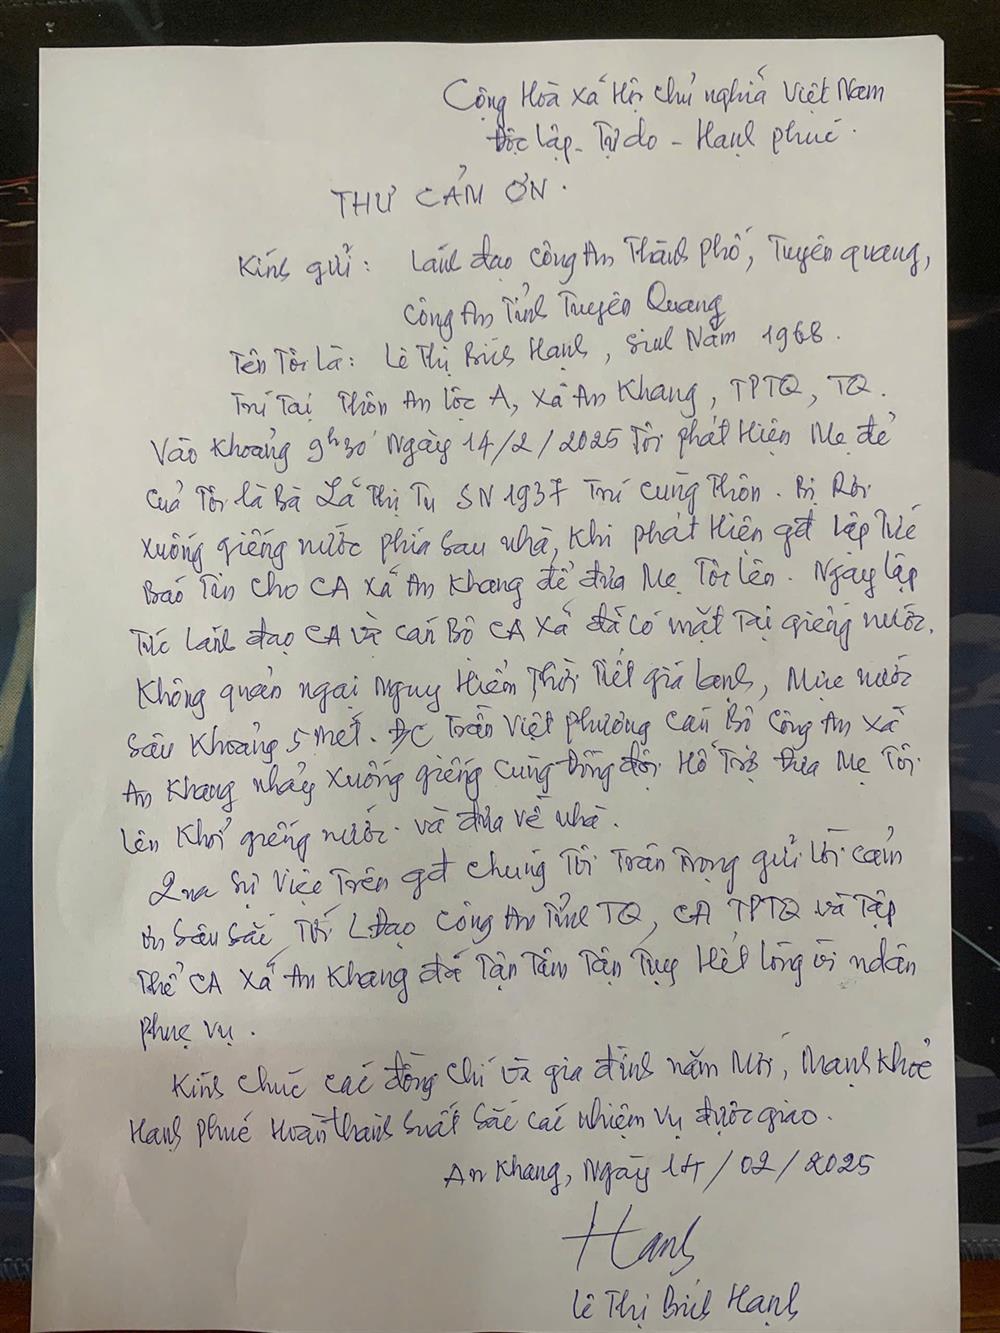 Cộng Hoà xã Hội chủ nghĩa Việt Nam
Độc lập - Tự do - Hạnh phúc.
THƯ CẢM ƠN.
Kính gửi: Lãnh đạo Công An Thành phố, Tuyên quang,
Công An Tỉnh Tuyên Quang
Tên Tôi là: Lê Thị Bích Hạnh, Sinh Năm 1968.
Trú Tại Thôn An lộc A, Xã An Khang, TPTQ, TQ.
Vào Khoảng 9h30' Ngày 14/2/2025 Tôi phát Hiện Mẹ đẻ
Của Tôi là Bà Lã Thị Tụ SN 1937 Trú Cùng Thôn. Bị Rơi
xuống giếng nước phía sau nhà, Khi phát Hiện gđ lập Tức
Báo Tin cho CA xã An Khang để đưa Mẹ Tôi lên. Ngay lập
Tức Lãnh đạo CA và cán Bộ CA Xã đã có mặt Tại giếng nước.
Không quản ngại Nguy Hiểm Thời Tiết giá lạnh, Mực nước
Sâu Khoảng 5 mét. ĐC Trần Việt Phương cán Bộ Công An xã
An Khang nhảy xuống giếng cùng Đồng đội Hỗ Trợ Đưa Mẹ Tôi
lên Khỏi giếng nước. và đưa về nhà.
Qua Sự Việc Trên gđ chúng Tôi Trân Trọng gửi lời cảm
ơn Sâu Sắc Tới LĐạo Công An Tỉnh TQ, CA TPTQ và Tập
Thể CA Xã An Khang đã Tận Tâm Tận Tụy Hết lòng vì ndân
phục vụ.
Kính chúc các đồng chí và gia đình năm Mới, Mạnh Khoẻ
Hạnh phúc Hoàn thành Suất Sắc các nhiệm vụ được giao.
An Khang, Ngày 14/02/2025
Hạnh
Lê Thị Bích Hạnh